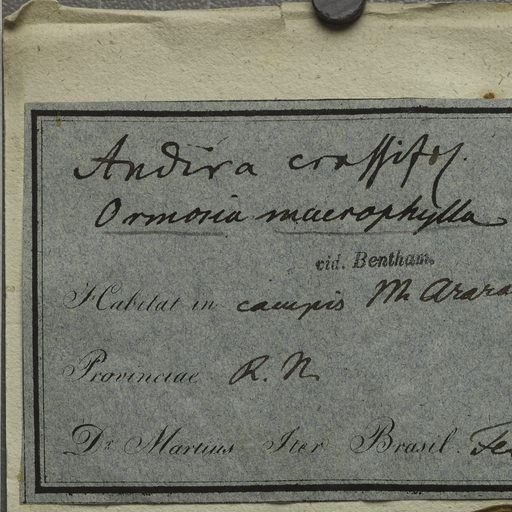 Andira crassifol.
Ormosia macrophylla
vid. Bentham.
Habitat in campis M. Arara
Provinciae R. N.
Dr. Martius Iter Brasil. Fe